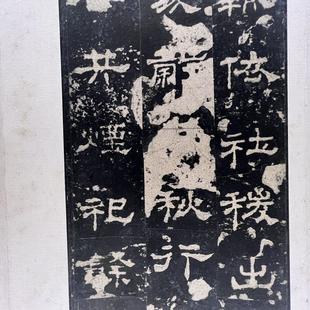 輒依社稷出
秋行
共煙祀餘